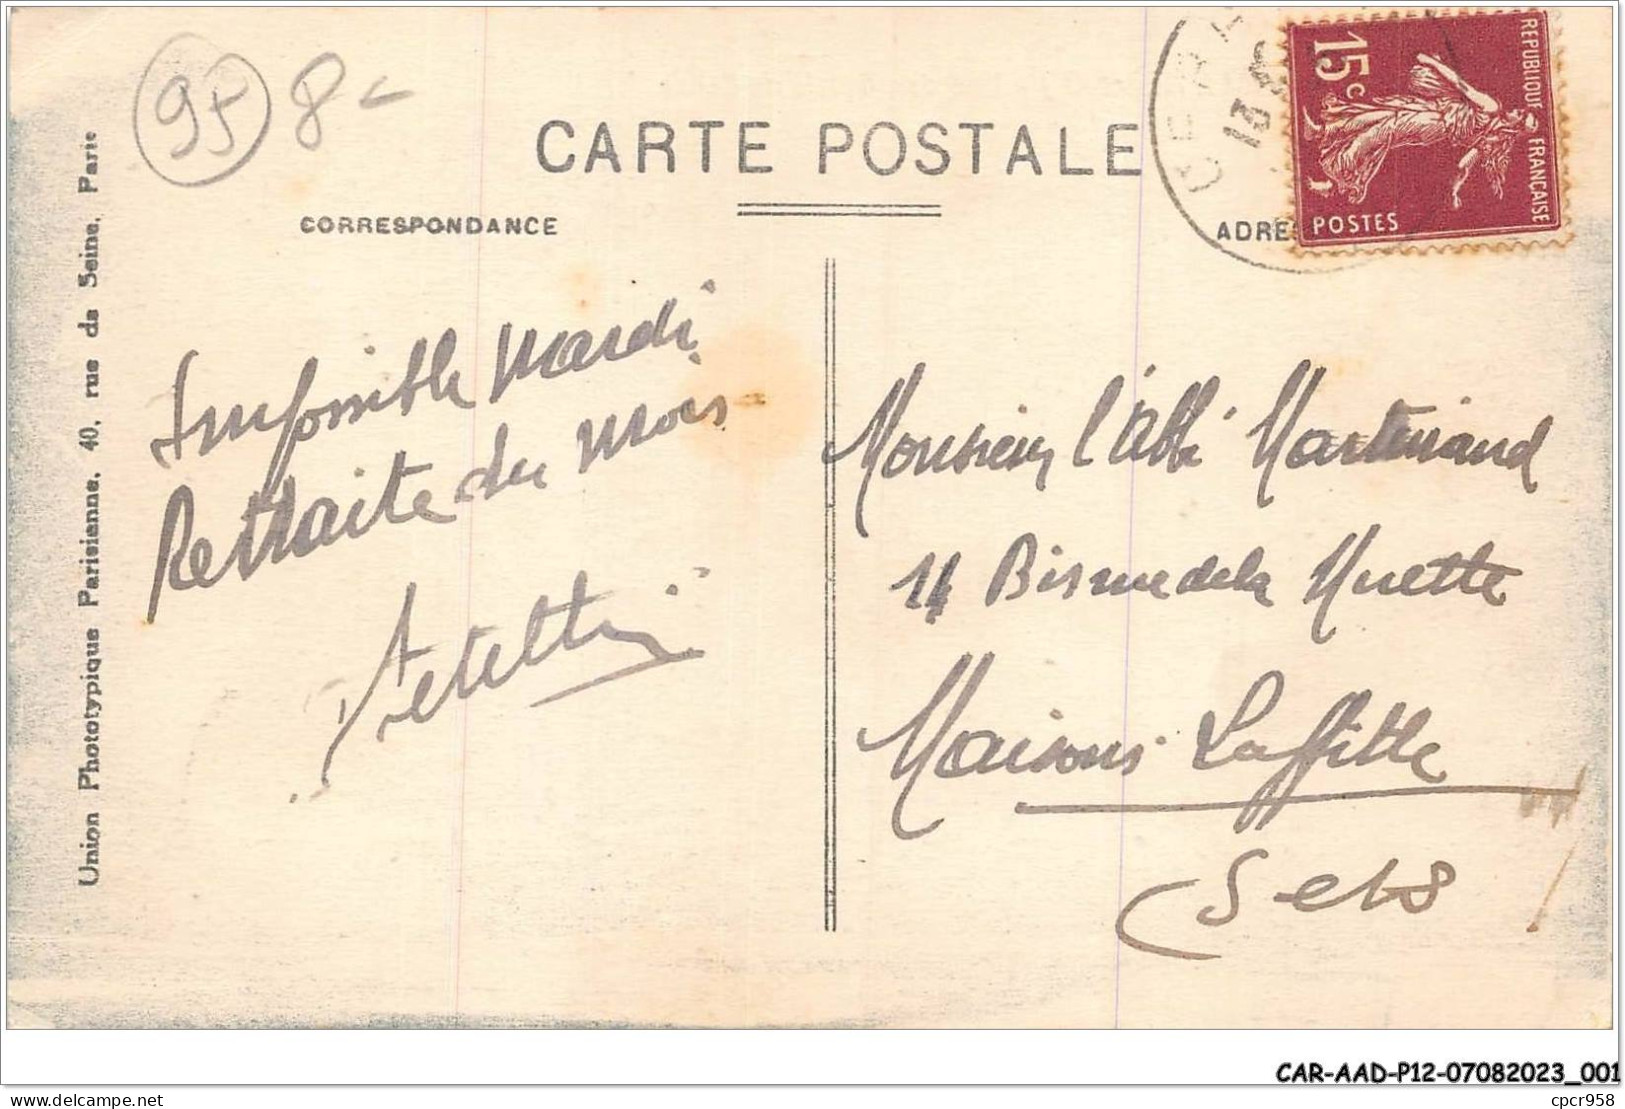 95 8-
CARTE POSTALE
CORRESPONDANCE
15c
REPUBLIQUE FRANÇAISE
POSTES
13
Union Photographique Parisienne, 40, rue de Seine, Paris
Impossible Mardi
Retraite du mois
Monsieur l'Abbé
14 Bis rue de la Muette
Maisons Laffitte
S et O
CAR-AAD-P12-07082023_001
cpcr958